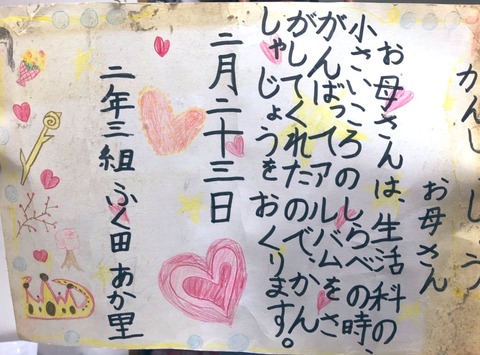 かんしゃじょう
お母さん
お母さんは、生活科の、
小さいころのしらべの時、
がんばってアルバムをさ
がしてくれたので、かん
しゃじょうをおくります。
二月二十三日
二年三組 ふく田 あか里